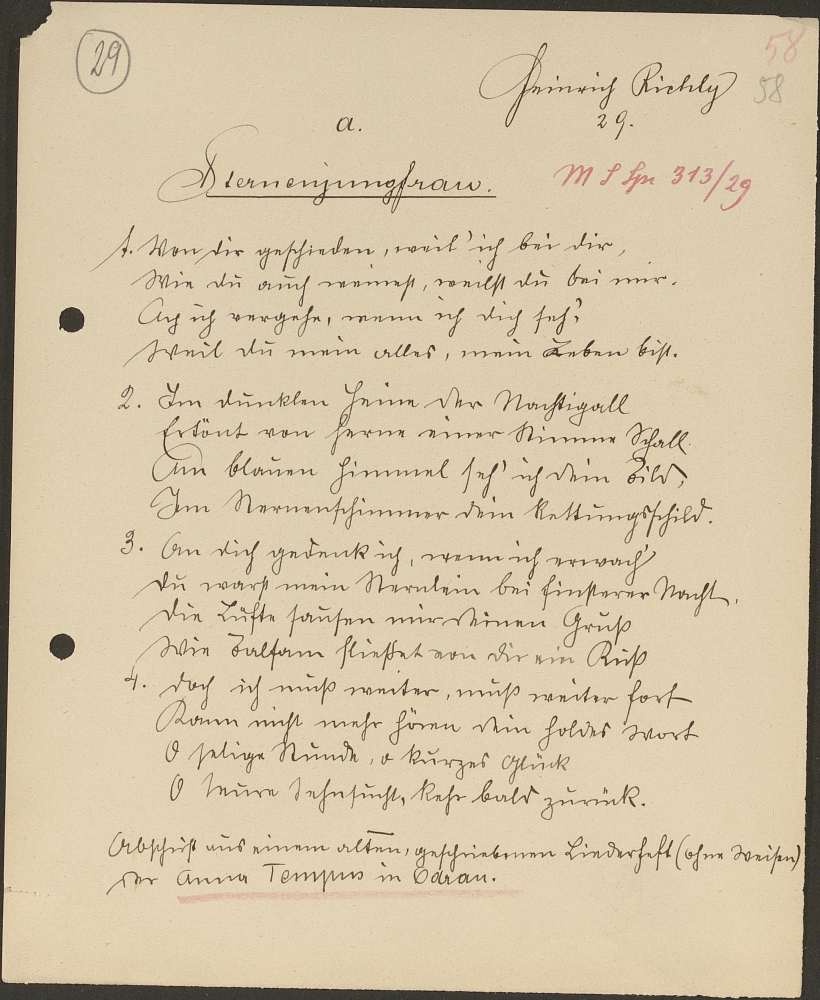 29
58
Heinrich Richly
58
29.
a.
Sternenjungfrau.
M S 313/29
1. Von dir geschieden, weil' ich bei dir,
Wie du auch weinest, weilst du bei mir.
Ach ich vergehe, wenn ich dich seh',
Weil du mein alles, mein Leben bist.
2. Im dunklen Heine der Nachtigall
Ertönt von ferne einer Stimme Schall.
Am blauen Himmel seh' ich dein Bild,
Im Sternenschimmer dein Rettungsschild.
3. An dich gedenk ich, wenn ich erwach'
Du warst mein Sternlein bei finsterer Nacht.
Die Lüfte sausen mir deinen Gruß
Wie Balsam fließet von dir ein Kuß
4. Doch ich muß weiter, muß weiter fort
Kann nicht mehr hören dein holdes Wort
O selige Stunde, o kurzes Glück
O teure Sehnsucht, kehr bald zurück.
Abschrift aus einem alten, geschriebenen Liederheft (ohne Weisen)
der Anna Tempus in